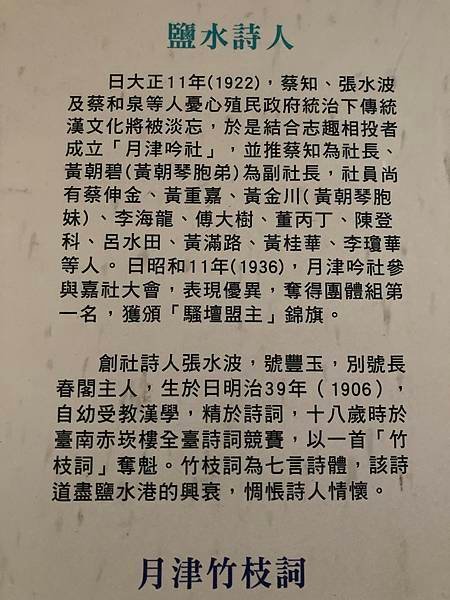 鹽水詩人
日大正11年(1922)，蔡知、張水波
及蔡和泉等人憂心殖民政府統治下傳統
漢文化將被淡忘，於是結合志趣相投者
成立「月津吟社」，並推蔡知為社長、
黃朝碧(黃朝琴胞弟)為副社長，社員尚
有蔡伸金、黃重嘉、黃金川(黃朝琴胞
妹)、李海龍、傅大樹、董丙丁、陳登
科、呂水田、黃滿路、黃桂華、李瓊華
等人。日昭和11年(1936)，月津吟社參
與嘉社大會，表現優異，奪得團體組第
一名，獲頒「騷壇盟主」錦旗。
創社詩人張水波，號豐玉，別號長
春閣主人，生於日明治39年（1906），
自幼受教漢學，精於詩詞，十八歲時於
臺南赤崁樓全臺詩詞競賽，以一首「竹
枝詞」奪魁。竹枝詞為七言詩體，該詩
道盡鹽水港的興衰，惆悵詩人情懷。
月津竹枝詞